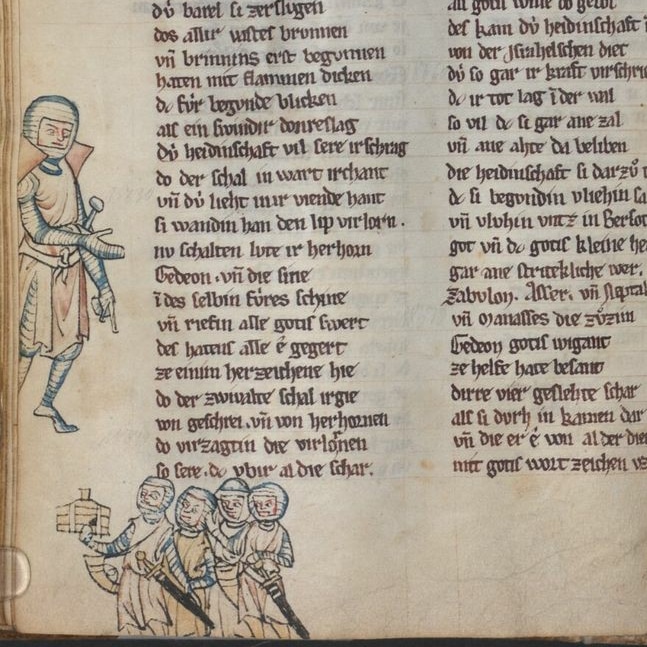 dv̊ barel si zerslůgen
dos allur vastes brunnen
vñ brinnins erst begunnen
haten mit flammen dicken
dc fv̊r begvnde blicken
als ein swindir donreslag
Dv̊ heidinschaft vil sere irschrag
do der schal in wart irchant
vñ dv̊ lieht inir viende hant
si wandin han den lip virlorn.
nv schalten lvte ir herhorn
Gedeon. vñ die sine
ī des selbin fv̊res schine
vñ riefin alle gotis swert
des hatens alle ê gegert
ze einim herzeichene hie
do der zwivalte schal irgie
von geschrei. vñ von herhornen
do virzagtin die virlornen
so sere. dc vbir al die schar.
des kam dv̊ heidinschaft
von der Jsrahelschen diet
dv̊ so gar ir kraft virschri
dc ir tot lag ī der wal
so vil dc si gar ane zal
vñ ane ahte da beliben
die heidinschaft si darzů
dc si begvndin vliehin
vñ vluhin vntz in
got vñ dc gotis kleine
gar ane stritekliche wer.
Zabulon. Asser. vñ
vñ Manasses die
Gedeon gotis wigant
ze helfe hate besant
dirre vier geslehte schar
als si dvrh in kamen dar
vñ die er ê von al der
mit gotis wort zeichen